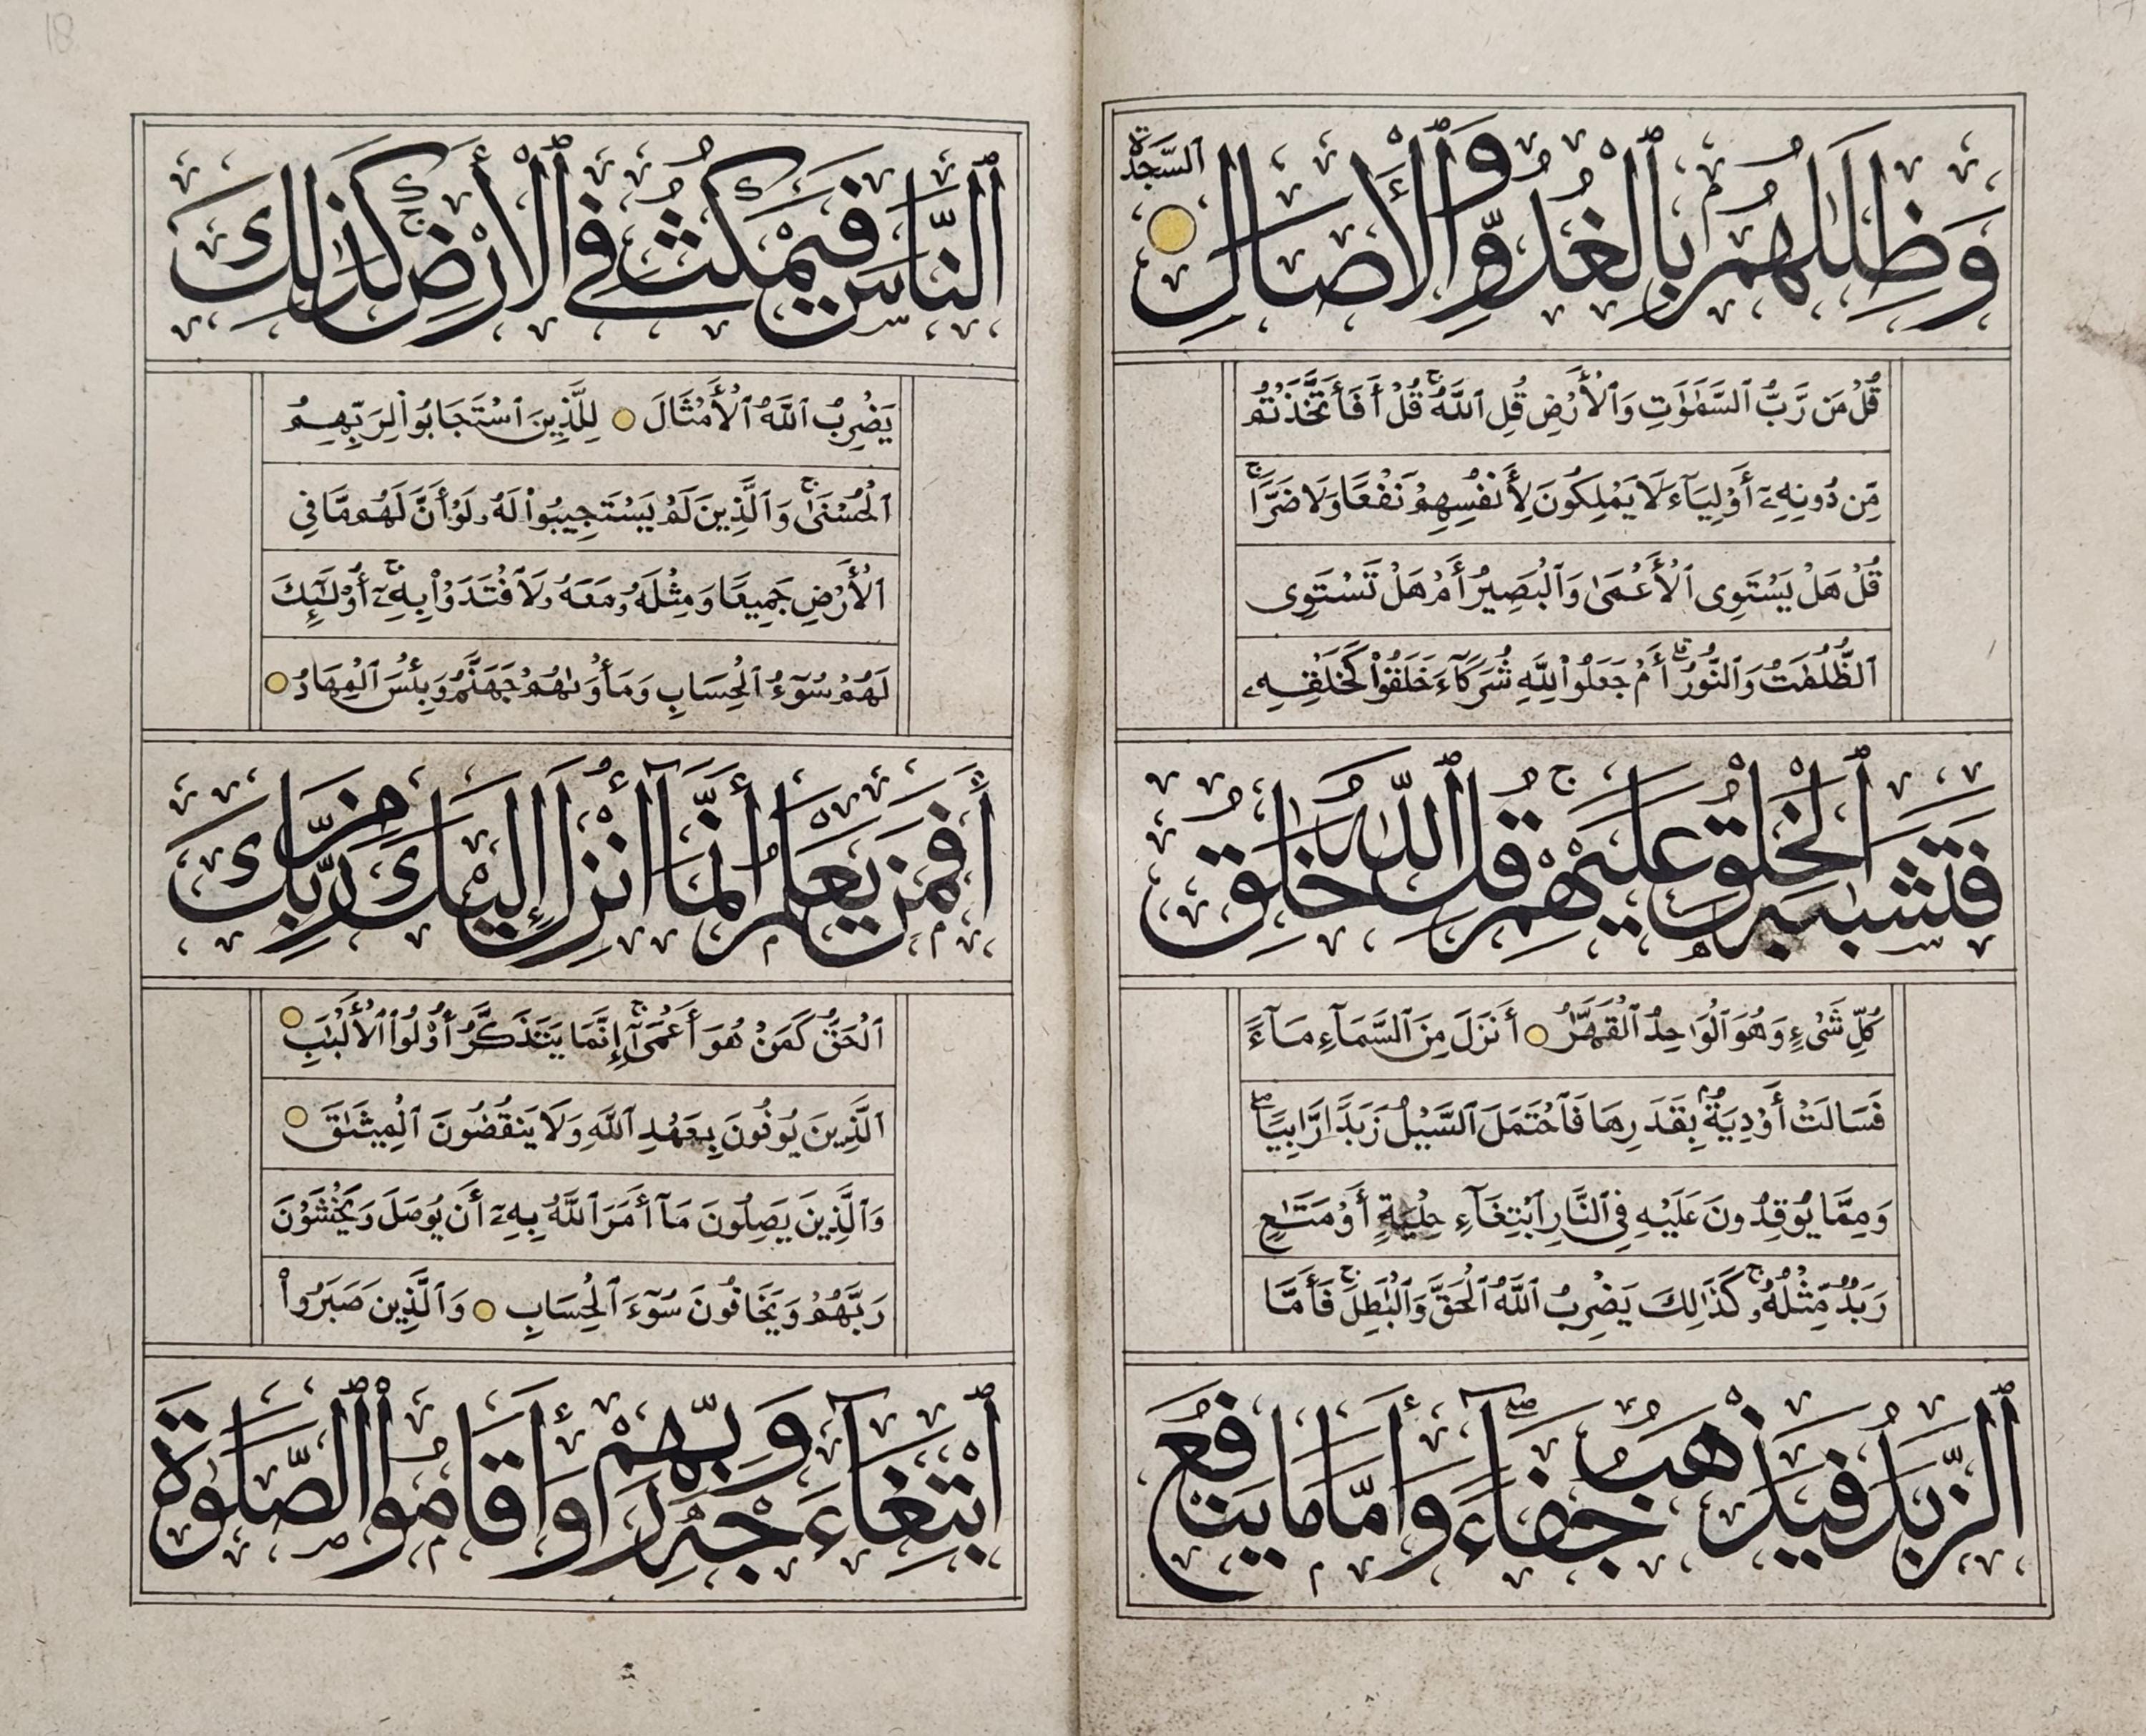 وَظِلَٰلُهُم بِالْغُدُوِّ وَٱلْأَصَالِ السَّجْدَة
قُلْ مَن رَّبُّ ٱلسَّمَٰوَٰتِ وَٱلْأَرْضِ قُلِ ٱللَّهُ ۚ قُلْ أَفَٱتَّخَذْتُم
مِّن دُونِهِۦٓ أَوْلِيَآءَ لَا يَمْلِكُونَ لِأَنفُسِهِمْ نَفْعًا وَلَا ضَرًّا ۚ
قُلْ هَلْ يَسْتَوِى ٱلْأَعْمَىٰ وَٱلْبَصِيرُ أَمْ هَلْ تَسْتَوِى
ٱلظُّلُمَٰتُ وَٱلنُّورُ ۗ أَمْ جَعَلُوا۟ لِلَّهِ شُرَكَآءَ خَلَقُوا۟ كَخَلْقِهِۦ
فَتَشَٰبَهَ ٱلْخَلْقُ عَلَيْهِمْ ۚ قُلِ ٱللَّهُ خَٰلِقُ
كُلِّ شَىْءٍ وَهُوَ ٱلْوَاحِدُ ٱلْقَهَّٰرُ أَنزَلَ مِنَ ٱلسَّمَآءِ مَآءً
فَسَالَتْ أَوْدِيَةٌۢ بِقَدَرِهَا فَٱحْتَمَلَ ٱلسَّيْلُ زَبَدًا رَّابِيًا ۖ
وَمِمَّا يُوقِدُونَ عَلَيْهِ فِى ٱلنَّارِ ٱبْتِغَآءَ حِلْيَةٍ أَوْ مَتَٰعٍ
زَبَدٌ مِّثْلُهُۥ ۚ كَذَٰلِكَ يَضْرِبُ ٱللَّهُ ٱلْحَقَّ وَٱلْبَٰطِلَ ۚ فَأَمَّا
ٱلزَّبَدُ فَيَذْهَبُ جُفَآءً ۖ وَأَمَّا مَا يَنفَعُ
ٱلنَّاسَ فَيَمْكُثُ فِى ٱلْأَرْضِ ۚ كَذَٰلِكَ
يَضْرِبُ ٱللَّهُ ٱلْأَمْثَالَ لِلَّذِينَ ٱسْتَجَابُوا۟ لِرَبِّهِمُ
ٱلْحُسْنَىٰ ۚ وَٱلَّذِينَ لَمْ يَسْتَجِيبُوا۟ لَهُۥ لَوْ أَنَّ لَهُم مَّا فِى
ٱلْأَرْضِ جَمِيعًا وَمِثْلَهُۥ مَعَهُۥ لَٱفْتَدَوْا۟ بِهِۦٓ ۚ أُو۟لَٰٓئِكَ
لَهُمْ سُوٓءُ ٱلْحِسَابِ وَمَأْوَىٰهُمْ جَهَنَّمُ وَبِئْسَ ٱلْمِهَادُ
أَفَمَن يَعْلَمُ أَنَّمَآ أُنزِلَ إِلَيْكَ مِن رَّبِّكَ
ٱلْحَقُّ كَمَنْ هُوَ أَعْمَىٰٓ ۚ إِنَّمَا يَتَذَكَّرُ أُو۟لُوا۟ ٱلْأَلْبَٰبِ
ٱلَّذِينَ يُوفُونَ بِعَهْدِ ٱللَّهِ وَلَا يَنقُضُونَ ٱلْمِيثَٰقَ
وَٱلَّذِينَ يَصِلُونَ مَآ أَمَرَ ٱللَّهُ بِهِۦٓ أَن يُوصَلَ وَيَخْشَوْنَ
رَبَّهُمْ وَيَخَافُونَ سُوٓءَ ٱلْحِسَابِ وَٱلَّذِينَ صَبَرُوا۟
ٱبْتِغَآءَ وَجْهِ رَبِّهِمْ وَأَقَامُوا۟ ٱلصَّلَوٰةَ
18